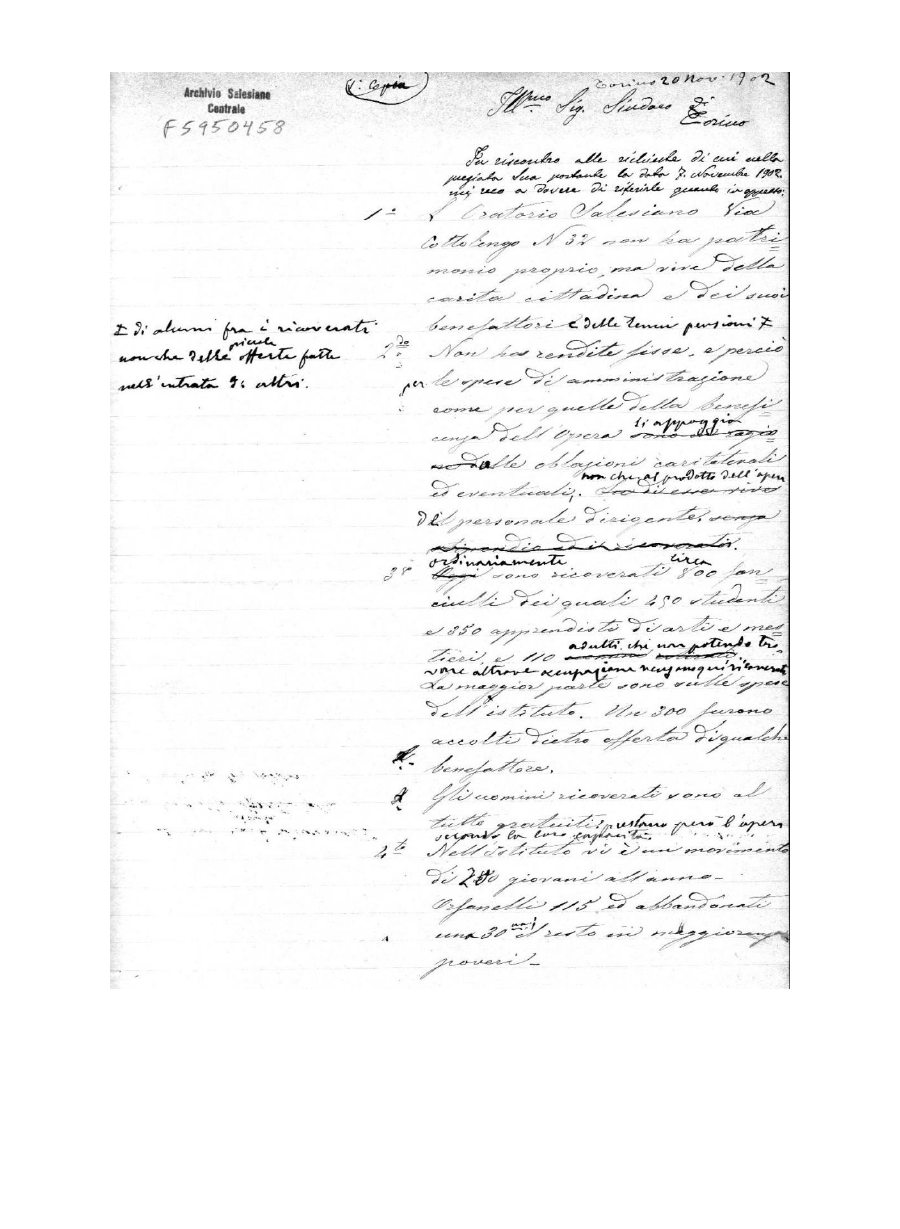 Archivio Salesiano
Centrale
F5950458
1ª Copia
Torino 20 Nov. 1902
Ill.mo Sig. Sindaco di
Torino
In riscontro alle richieste di cui nella
pregiata Sua portante la data 7. Novembre 1902.
mi reco a dovere di riferirle quanto in appresso:
1º L'Oratorio Salesiano Via
Cottolengo N 32 non ha patri=
monio proprio, ma vive della
carità cittadina e dei suoi
benefattori e delle tenui pensioni
di alunni fra i ricoverati
nonchè delle piccole offerte fatte
nell'entrata di altri.
2do Non ha rendite fisse, e perciò
per le spese di amministrazione
come per quelle della benefi
cenza dell'Opera si appoggia
alle oblazioni caritatevoli
ed eventuali, non che al prodotto dell'opera
del personale dirigente, senza
stipendio ed i ricoverati.
3º ordinariamente
Oggi sono ricoverati circa 800 fan=
ciulli dei quali 450 studenti
e 350 apprendisti di arti e mes=
tieri, e 110 adulti, che non potendo tro-
vare altrove occupazione vengono qui ricoverati
La maggior parte sono sulle spese
dell'istituto. Un 300 furono
accolti dietro offerta di qualche
benefattore.
Gli uomini ricoverati sono al
tutto gratuiti; prestano però l'opera
secondo la loro capacità.
4to Nell'istituto vi è un movimento
di 250 giovani all'anno-
Orfanelli 115 ed abbandonati
una 30 il resto in maggioranza
poveri-